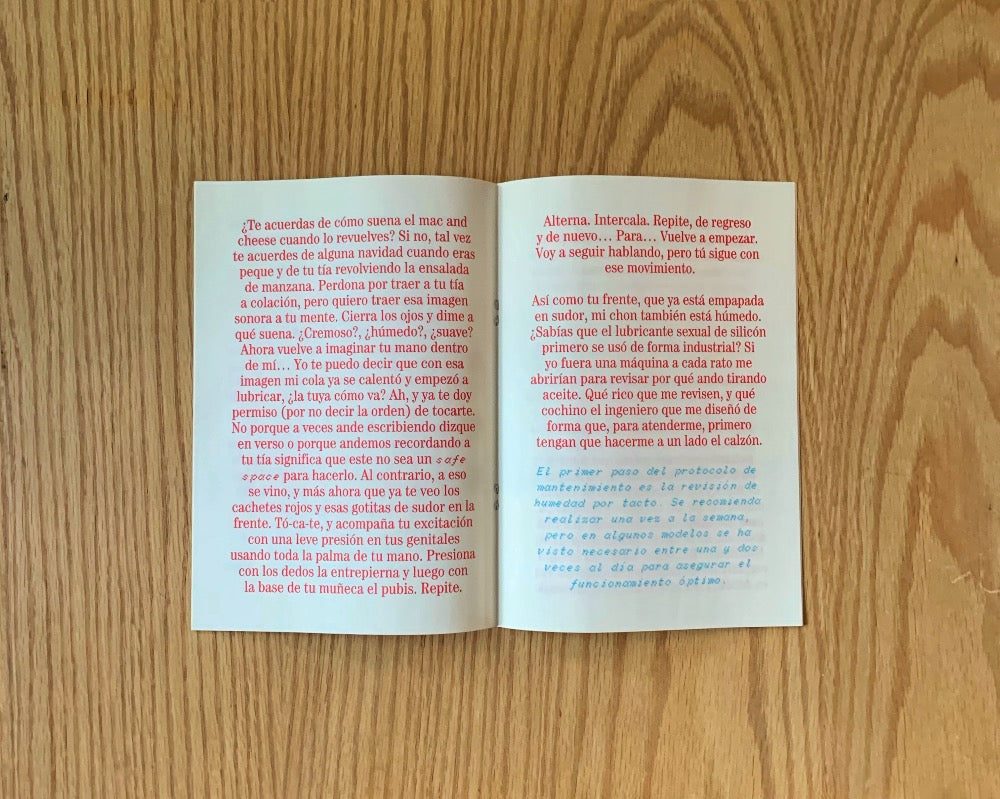 ¿Te acuerdas de cómo suena el mac and
cheese cuando lo revuelves? Si no, tal vez
te acuerdes de alguna navidad cuando eras
peque y de tu tía revolviendo la ensalada
de manzana. Perdona por traer a tu tía
a colación, pero quiero traer esa imagen
sonora a tu mente. Cierra los ojos y dime a
qué suena. ¿Cremoso?, ¿húmedo?, ¿suave?
Ahora vuelve a imaginar tu mano dentro
de mí... Yo te puedo decir que con esa
imagen mi cola ya se calentó y empezó a
lubricar, ¿la tuya cómo va? Ah, y ya te doy
permiso (por no decir la orden) de tocarte.
No porque a veces ande escribiendo dizque
en verso o porque andemos recordando a
tu tía significa que este no sea un safe
space para hacerlo. Al contrario, a eso
se vino, y más ahora que ya te veo los
cachetes rojos y esas gotitas de sudor en la
frente. Tó-ca-te, y acompaña tu excitación
con una leve presión en tus genitales
usando toda la palma de tu mano. Presiona
con los dedos la entrepierna y luego con
la base de tu muñeca el pubis. Repite.
Alterna. Intercala. Repite, de regreso
y de nuevo... Para... Vuelve a empezar.
Voy a seguir hablando, pero tú sigue con
ese movimiento.
Así como tu frente, que ya está empapada
en sudor, mi chon también está húmedo.
¿Sabías que el lubricante sexual de silicón
primero se usó de forma industrial? Si
yo fuera una máquina a cada rato me
abrirían para revisar por qué ando tirando
aceite. Qué rico que me revisen, y qué
cochino el ingeniero que me diseñó de
forma que, para atenderme, primero
tengan que hacerme a un lado el calzón.
El primer paso del protocolo de
mantenimiento es la revisión de
humedad por tacto. Se recomienda
realizar una vez a la semana,
pero en algunos modelos se ha
visto necesario entre una y dos
veces al día para asegurar el
funcionamiento óptimo.